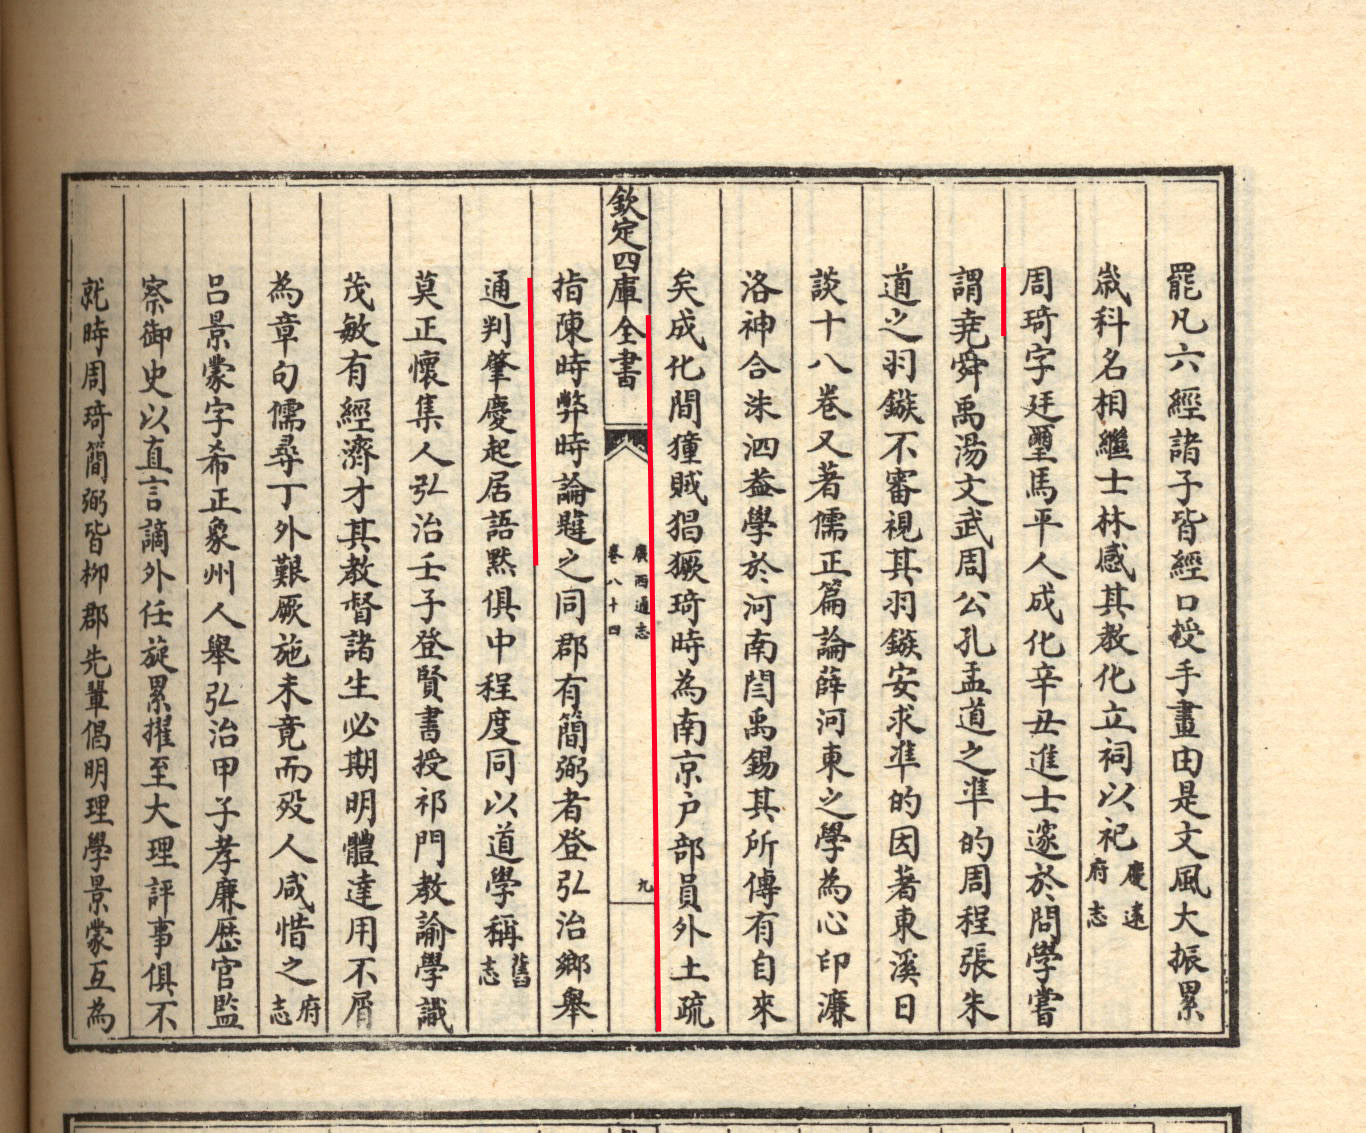 罷凡六經諸子皆經口授手畫由是文風大振累
歲科名相繼士林感其教化立祠以祀慶遠府志
周琦字廷璽馬平人成化辛丑進士邃於問學嘗
謂堯舜禹湯文武周公孔孟道之準的周程張朱
道之羽鏃不審視其羽鏃安求準的因著東溪日
談十八巻又著儒正篇論薛河東之學為心印濂
洛神合洙泗葢學於河南閆禹錫其所傳有自來
矣成化間獞賊猖獗琦時為南京户部員外土疏
欽定四庫全書
廣西通志
卷八十四
九
指陳時弊時論韙之同郡有簡弼者登弘治鄉舉
通判肇慶起居語黙俱中程度同以道學稱舊志
莫正懷集人弘治壬子登賢書授祁門教諭學識
茂敏有經濟才其教督諸生必期明體達用不屑
為章句儒尋丁外艱厥施未竟而殁人咸惜之府志
呂景蒙字希正象州人舉弘治甲子孝廉歴官監
察御史以直言謫外任旋累擢至大理評事俱不
就時周琦簡弼皆柳郡先輩倡明理學景蒙互為